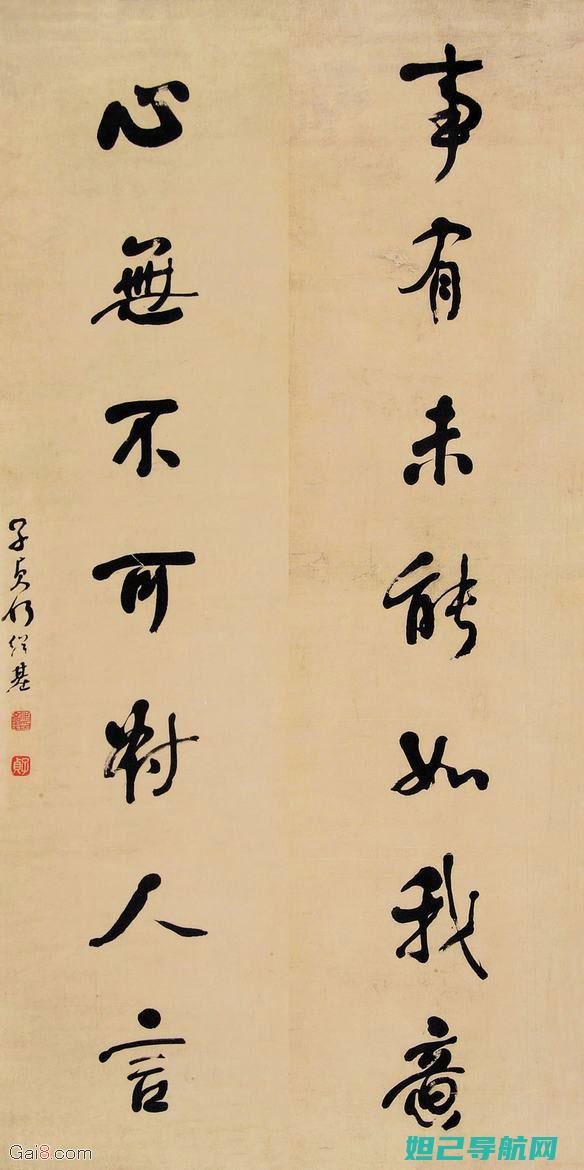 事有未能如我意
心無不可對人言
子貞何紹基
Gai8.com
妲己导航网